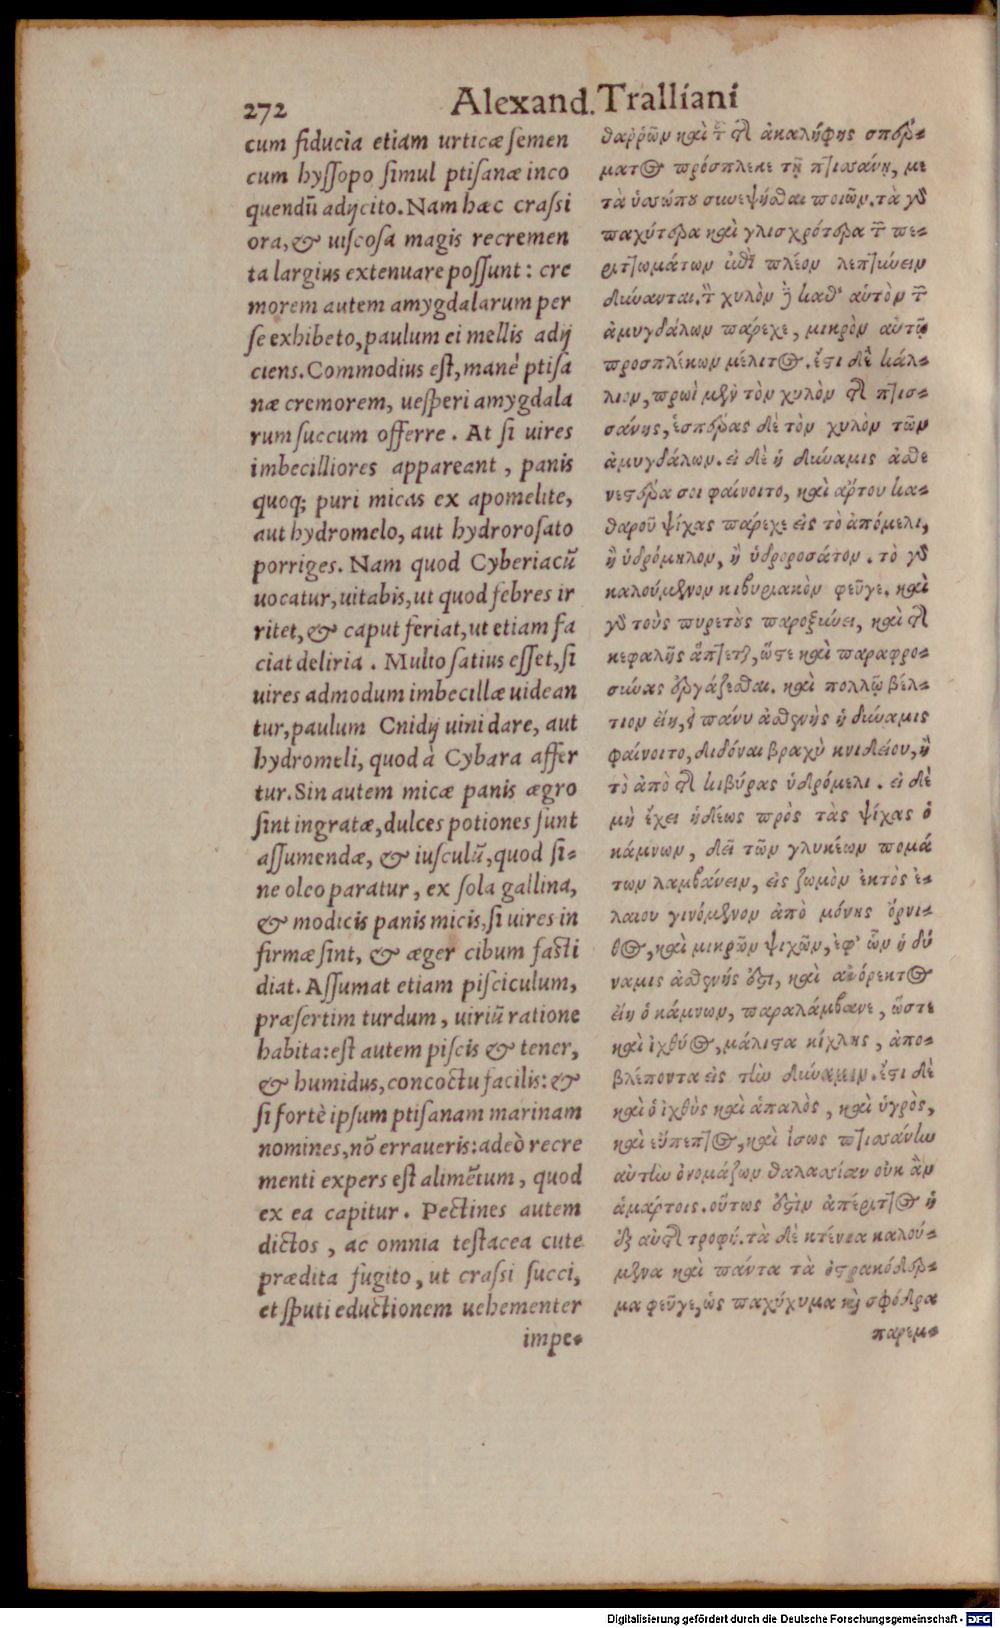 272
Alexand. Tralliani
cum fiducia etiam urticæ ſemen
cum hyſſopo ſimul ptiſanæ inco
quendū adijcito. Nam hæc craſsi
ora, & uiſcoſa magis recremen
ta largius extenuare poſſunt: cre
morem autem amygdalarum per
ſe exhibeto, paulum ei mellis adij
ciens. Commodius eſt, manè ptiſa
næ cremorem, ueſperi amygdala
rum ſuccum offerre. At ſi uires
imbecilliores appareant, panis
quoq; puri micas ex apomelite,
aut hydromelo, aut hydroroſato
porriges. Nam quod Cyberiacū
uocatur, uitabis, ut quod febres ir
ritet, & caput feriat, ut etiam fa
ciat deliria. Multo ſatius eſſet, ſi
uires admodum imbecillæ uidean
tur, paulum Cnidij uini dare, aut
hydromeli, quod à Cybara affer
tur. Sin autem micæ panis ægro
ſint ingratæ, dulces potiones ſunt
aſſumendæ, & iuſculū, quod ſi-
ne oleo paratur, ex ſola gallina,
& modicis panis micis, ſi uires in
firmæ ſint, & æger cibum faſti
diat. Aſſumat etiam piſciculum,
præſertim turdum, uiriū ratione
habita: eſt autem piſcis & tener,
& humidus, concoctu facilis: &
ſi fortè ipſum ptiſanam marinam
nomines, nō erraueris: adeò recre
menti expers eſt alimētum, quod
ex ea capitur. Pectines autem
dictos, ac omnia teſtacea cute
prædita fugito, ut craſsi ſucci,
et ſputi eductionem uehementer
impe-
θαῤῥῶν καὶ τὸ τῆς ἀκαλήφης σπέρ-
ματος πρόσπλεκε τῇ πτισσάνῃ, με
τὰ ὑσσώπου συνεψῆσθαι ποιῶν. τὰ γὰρ
παχύτερα καὶ γλισχρότερα τῶν πε-
ριττωμάτων ἐπὶ πλέον λεπτύνειν
δύνανται. τὸν χυλὸν δὲ καθ' αὑτὸν τῶν
ἀμυγδάλων πάρεχε, μικρὸν αὐτῷ
προσπλέκων μέλιτος. ἔστι δὲ κάλ-
λιον, πρωὶ μὲν τὸν χυλὸν τῆς πτισ-
σάνης, ἑσπέρας δὲ τὸν χυλὸν τῶν
ἀμυγδάλων. εἰ δὲ ἡ δύναμις ἀσθε
νεστέρα σοι φαίνοιτο, καὶ ἄρτου κα-
θαροῦ ψίχας πάρεχε εἰς τὸ ἀπόμελι,
ἢ ὑδρόμηλον, ἢ ὑδροροσάτον. τὸ γὰρ
καλούμενον κιβυριακὸν φεῦγε. καὶ
γὰρ τοὺς πυρετοὺς παροξύνει, καὶ τῆς
κεφαλῆς ἅπτεται, ὥστε καὶ παραφρο-
σύνας ἐργάζεσθαι. καὶ πολλῷ βέλ-
τιον εἴη, εἰ πάνυ ἀσθενὴς ἡ δύναμις
φαίνοιτο, διδόναι βραχὺ κνιδείου, ἢ
τὸ ἀπὸ τῆς κιβύρας ὑδρόμελι. εἰ δὲ
μὴ ἔχει ἡδέως πρὸς τὰς ψίχας ὁ
κάμνων, δεῖ τῶν γλυκέων πομά
των λαμβάνειν, εἰς ζωμὸν ἐκτὸς ἐ-
λαίου γινόμενον ἀπὸ μόνης ὄρνι-
θος, καὶ μικρῶν ψιχῶν, ἐφ' ὧν ἡ δύ
ναμις ἀσθενής ἐστι, καὶ ἀνόρεκτος
εἴη ὁ κάμνων, παραλάμβανε, ὥστε
καὶ ἰχθύος, μάλιστα κίχλης, ἀπο-
βλέποντα εἰς τὴν δύναμιν. ἔστι δὲ
καὶ ὁ ἰχθὺς καὶ ἁπαλὸς, καὶ ὑγρὸς,
καὶ εὔπεπτος, καὶ ἴσως πτισσάνην
αὐτὴν ὀνομάζων θαλασσίαν οὐκ ἂν
ἁμάρτοις. οὕτως ἐστὶν ἀπέριττος ἡ
ἐξ αὐτῆς τροφή. τὰ δὲ κτένια καλού-
μενα καὶ πάντα τὰ ὀστρακόδερ-
μα φεῦγε, ὡς παχύχυμα καὶ σφόδρα
παρεμ-
Digitalisierung gefördert durch die Deutsche Forschungsgemeinschaft - DFG